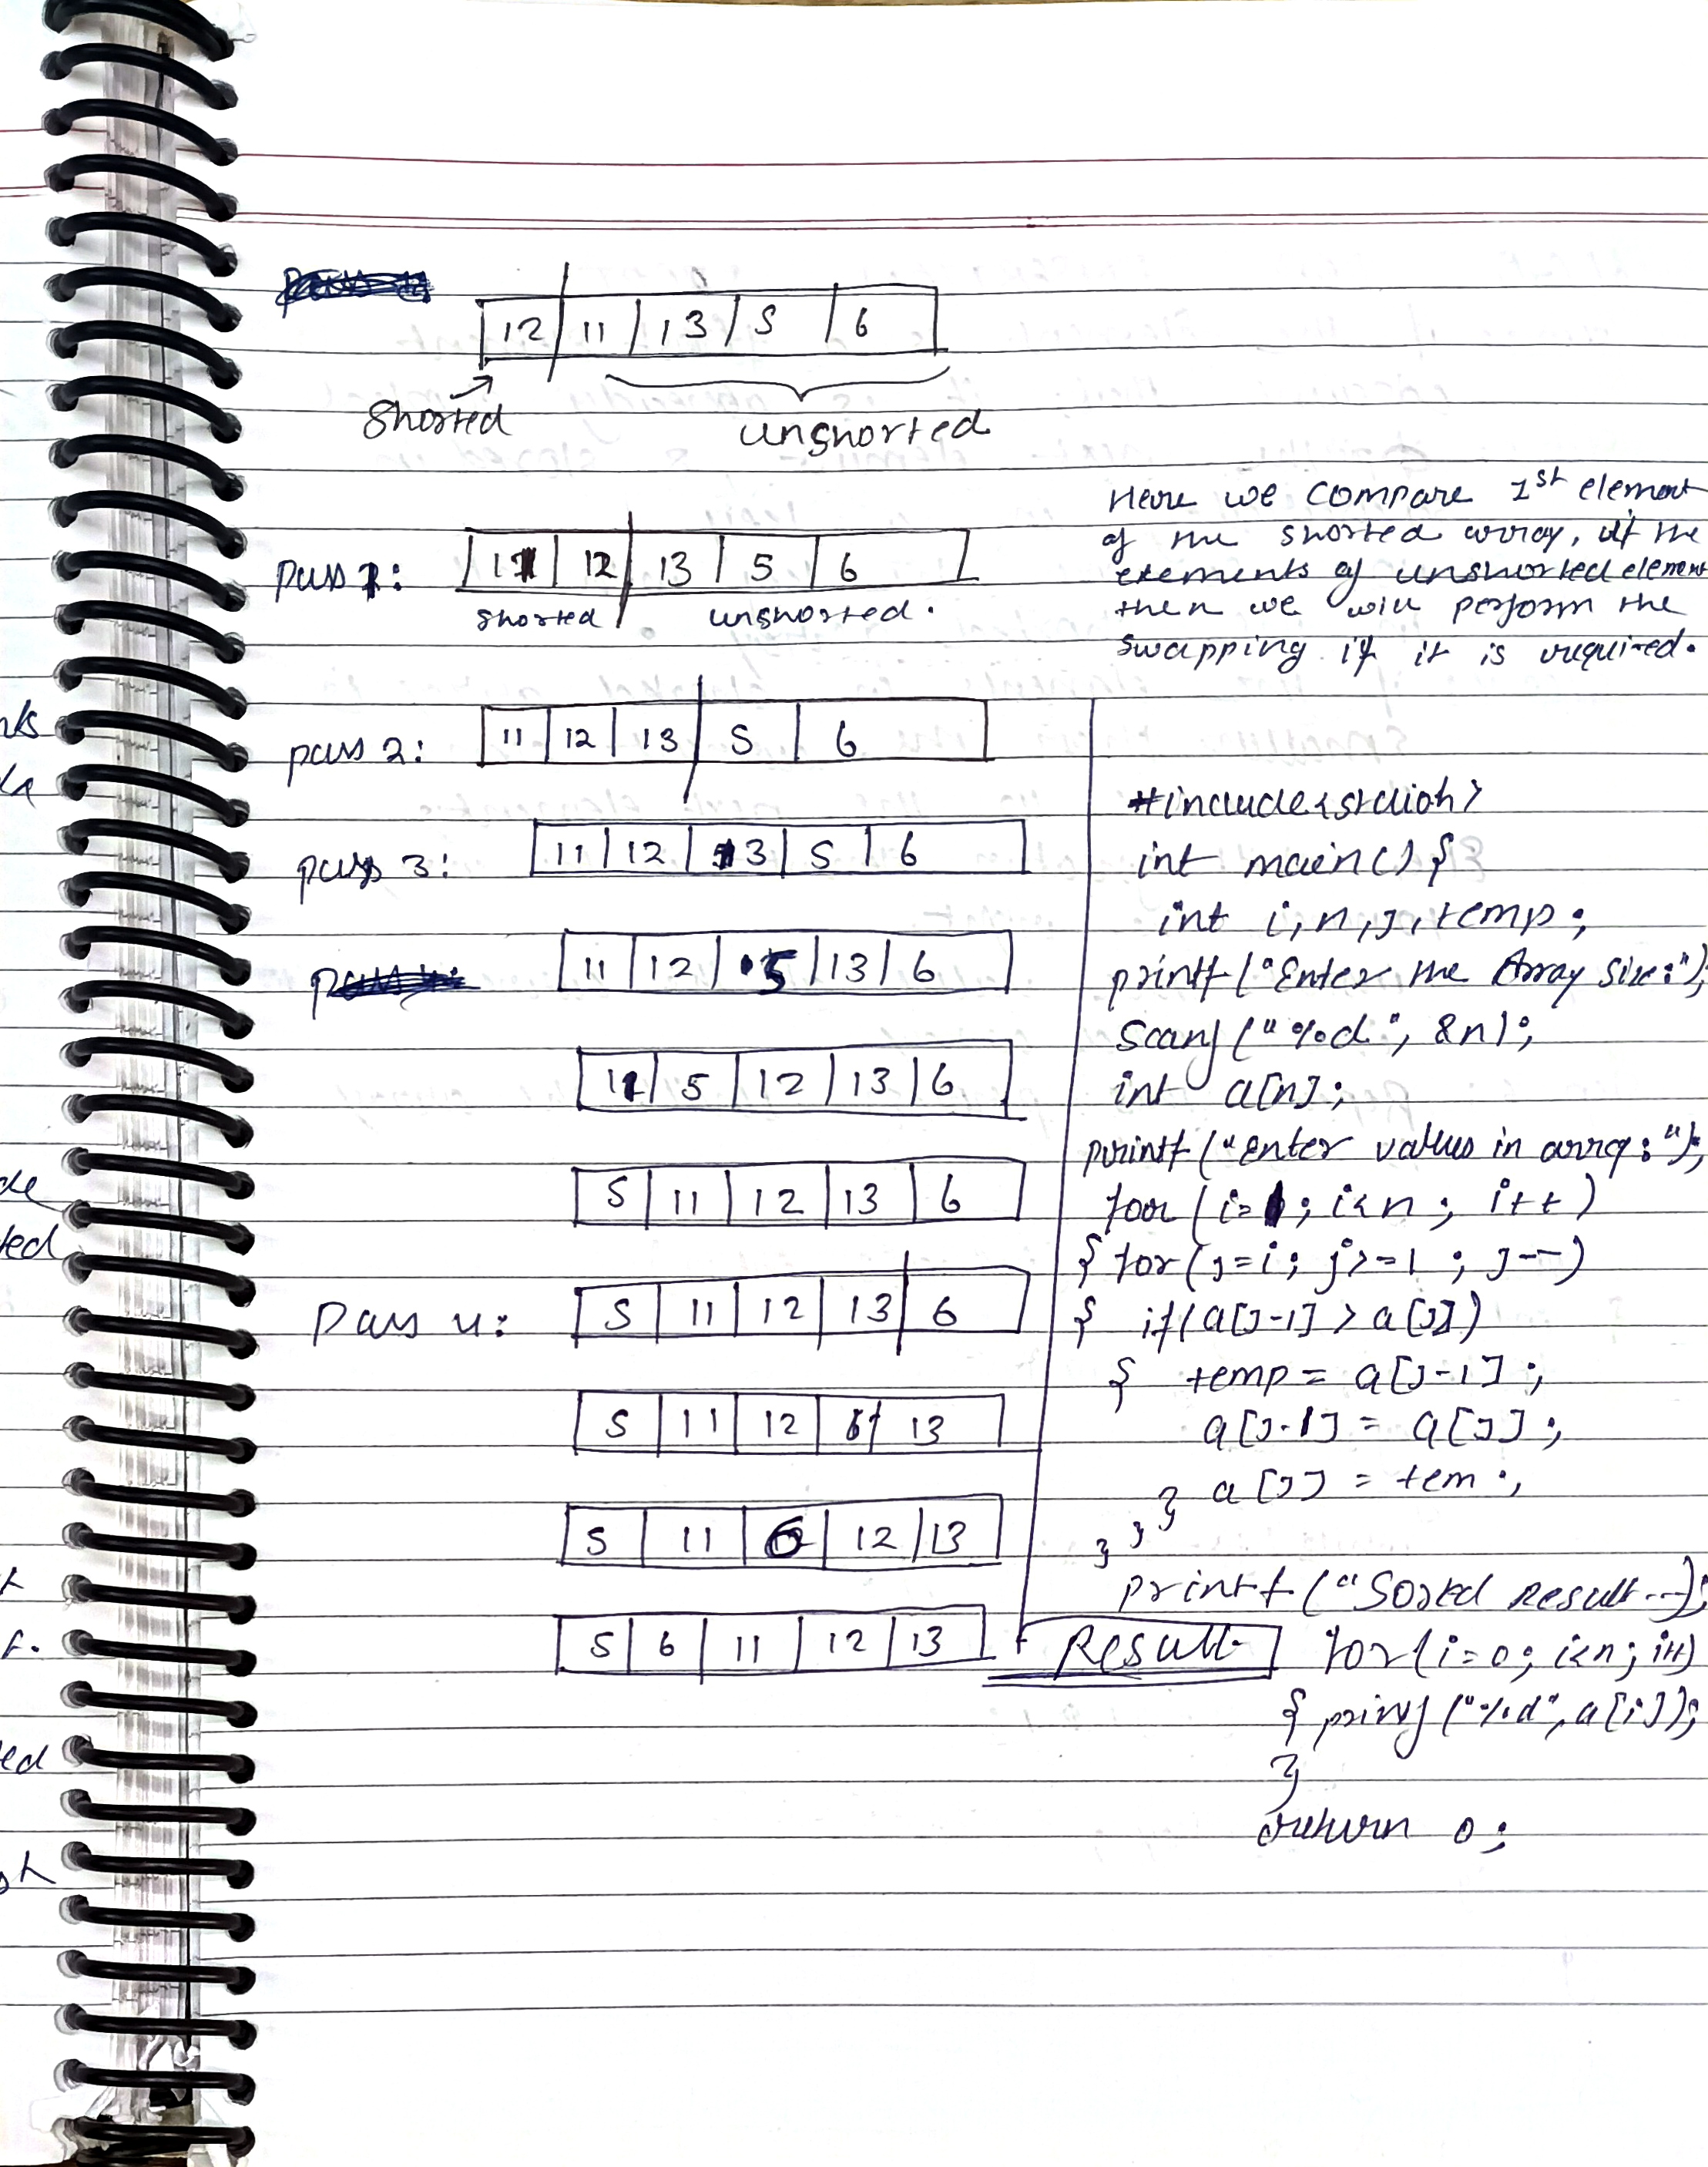 12 11 13 5 6
Shorted
unshorted
Pass 1:
11 12 13 5 6
shorted
unshorted.
Here we compare 1st element
of the shorted array, if the
elements of unshorted element
then we will perform the
swapping if it is required.
pass 2:
11 12 13 5 6
pass 3:
11 12 13 5 6
11 12 5 13 6
11 5 12 13 6
5 11 12 13 6
Pass 4:
5 11 12 13 6
5 11 12 6 13
5 11 6 12 13
5 6 11 12 13
Result
#include<stdioh>
int main() {
int i,n,j,temp;
printf("Enter the Array Size:");
Scanf("%d", &n);
int a[n];
printf("Enter values in array:");
for (i=1; i<n; i++)
{ for(j=i; j>=1; j--)
{ if(a[j-1] > a[j])
{ temp = a[j-1];
a[j-1] = a[j];
a[j] = tem;
}
}
}
printf("Sorted Result--);
for(i=0; i<n; i++)
{ printf("%d", a[i]);
}
return 0;
nks
de
ted
t.
ed